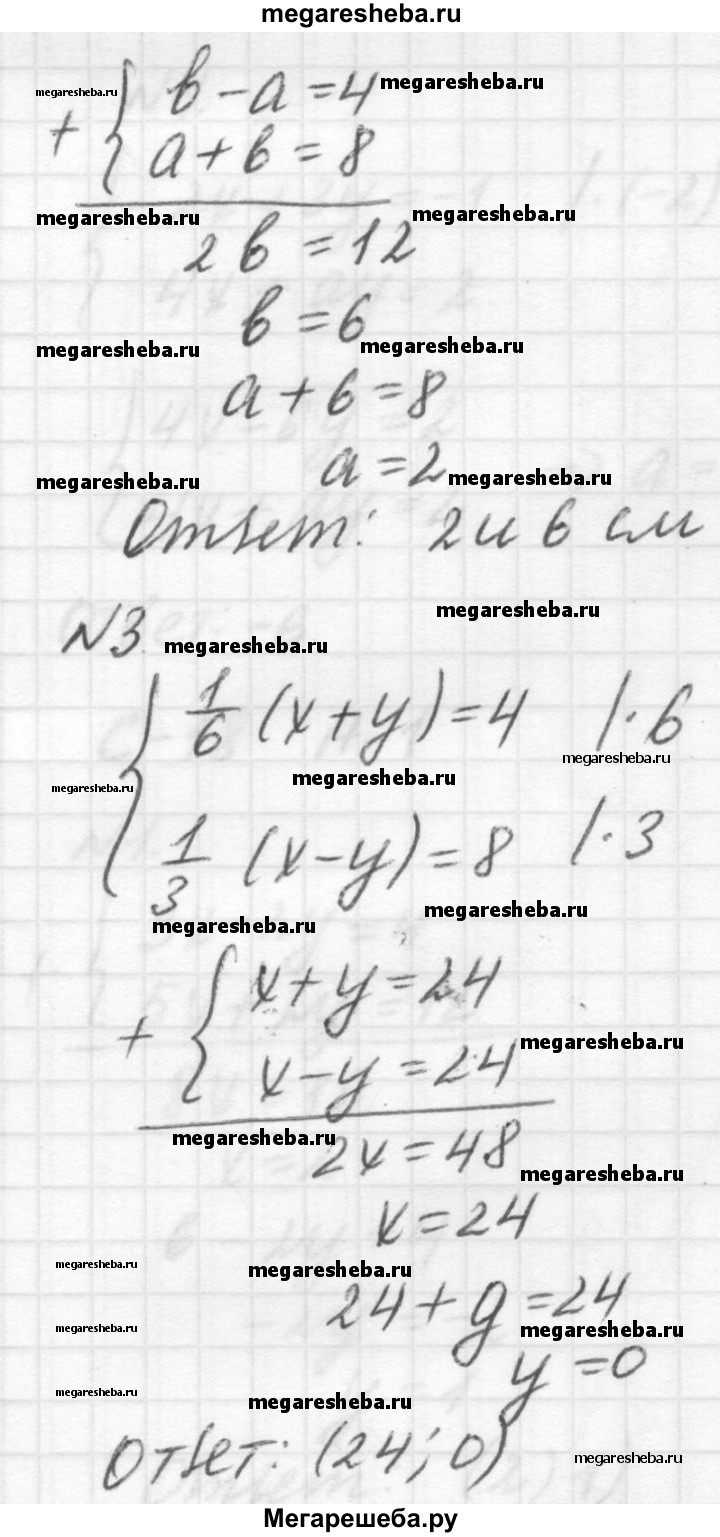 megaresheba.ru
megaresheba.ru { в - а = 4 megaresheba.ru
+ { а + в = 8
megaresheba.ru megaresheba.ru
2в = 12
в = 6
megaresheba.ru megaresheba.ru
а + в = 8
а = 2
megaresheba.ru megaresheba.ru
Ответ: 2 и 6 см
megaresheba.ru
№3 megaresheba.ru
{ 1/6 (x + y) = 4 | · 6
megaresheba.ru
megaresheba.ru megaresheba.ru
1/3 (x - y) = 8 | · 3
megaresheba.ru megaresheba.ru
+ { x + y = 24
x - y = 24 megaresheba.ru
megaresheba.ru
2x = 48 megaresheba.ru
x = 24
megaresheba.ru megaresheba.ru
24 + y = 24
megaresheba.ru megaresheba.ru
y = 0
megaresheba.ru megaresheba.ru
Ответ: (24; 0) megaresheba.ru
Мегарешеба.ру